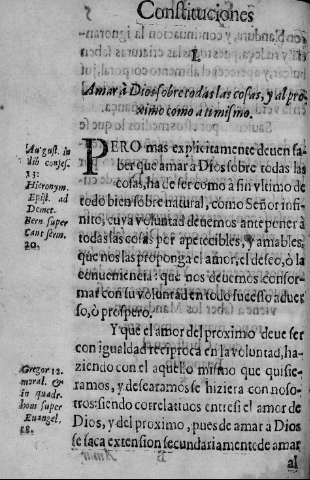 Constituciones
I.
Amar à Dios sobre todas las cosas, y al pro-
ximo como a ti mismo.
PERO mas explicitamente deuen sa-
ber que amar à Dios sobre todas las
cosas, ha de ser como à sin vltimo de
todo bien sobre natural, como Señor infi-
nito, cuya voluntad deuemos anteponer à
todas las cosas por apetecibles, y amables,
que nos las proponga el amor, el deseo, ò la
conueniencia: que nos deuemos confor-
mar con su voluntad en todo sucesso aduer
so, ò prospero.
Y que el amor del proximo deue ser
con igualdad reciproca en la voluntad, ha-
ziendo con el aquello mismo que quisie-
ramos, y desearamos se hiziera con noso-
tros: siendo correlatiuos entre si el amor de
Dios, y del proximo, pues de amar a Dios
se saca extension secundariamente de amar
al
August. in
lib confes.
13:
Hieronym.
Epist. ad
Demet.
Bern super
Cant serm.
20.
Gregor 12.
moral. &
in quadr.
hom super
Euangel.
28.